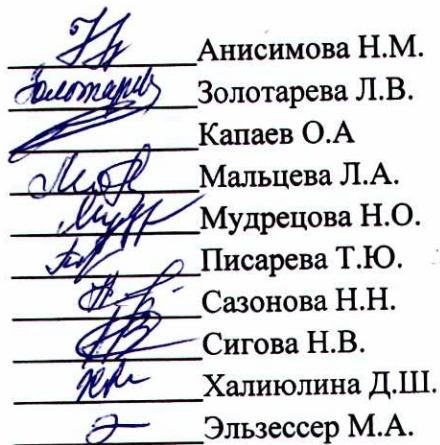 Анисимова Н.М.
Золотарева Л.В.
Капаев О.А
Мальцева Л.А.
Мудрецова Н.О.
Писарева Т.Ю.
Сазонова Н.Н.
Сигова Н.В.
Халиюлина Д.Ш.
Эльзессер М.А.